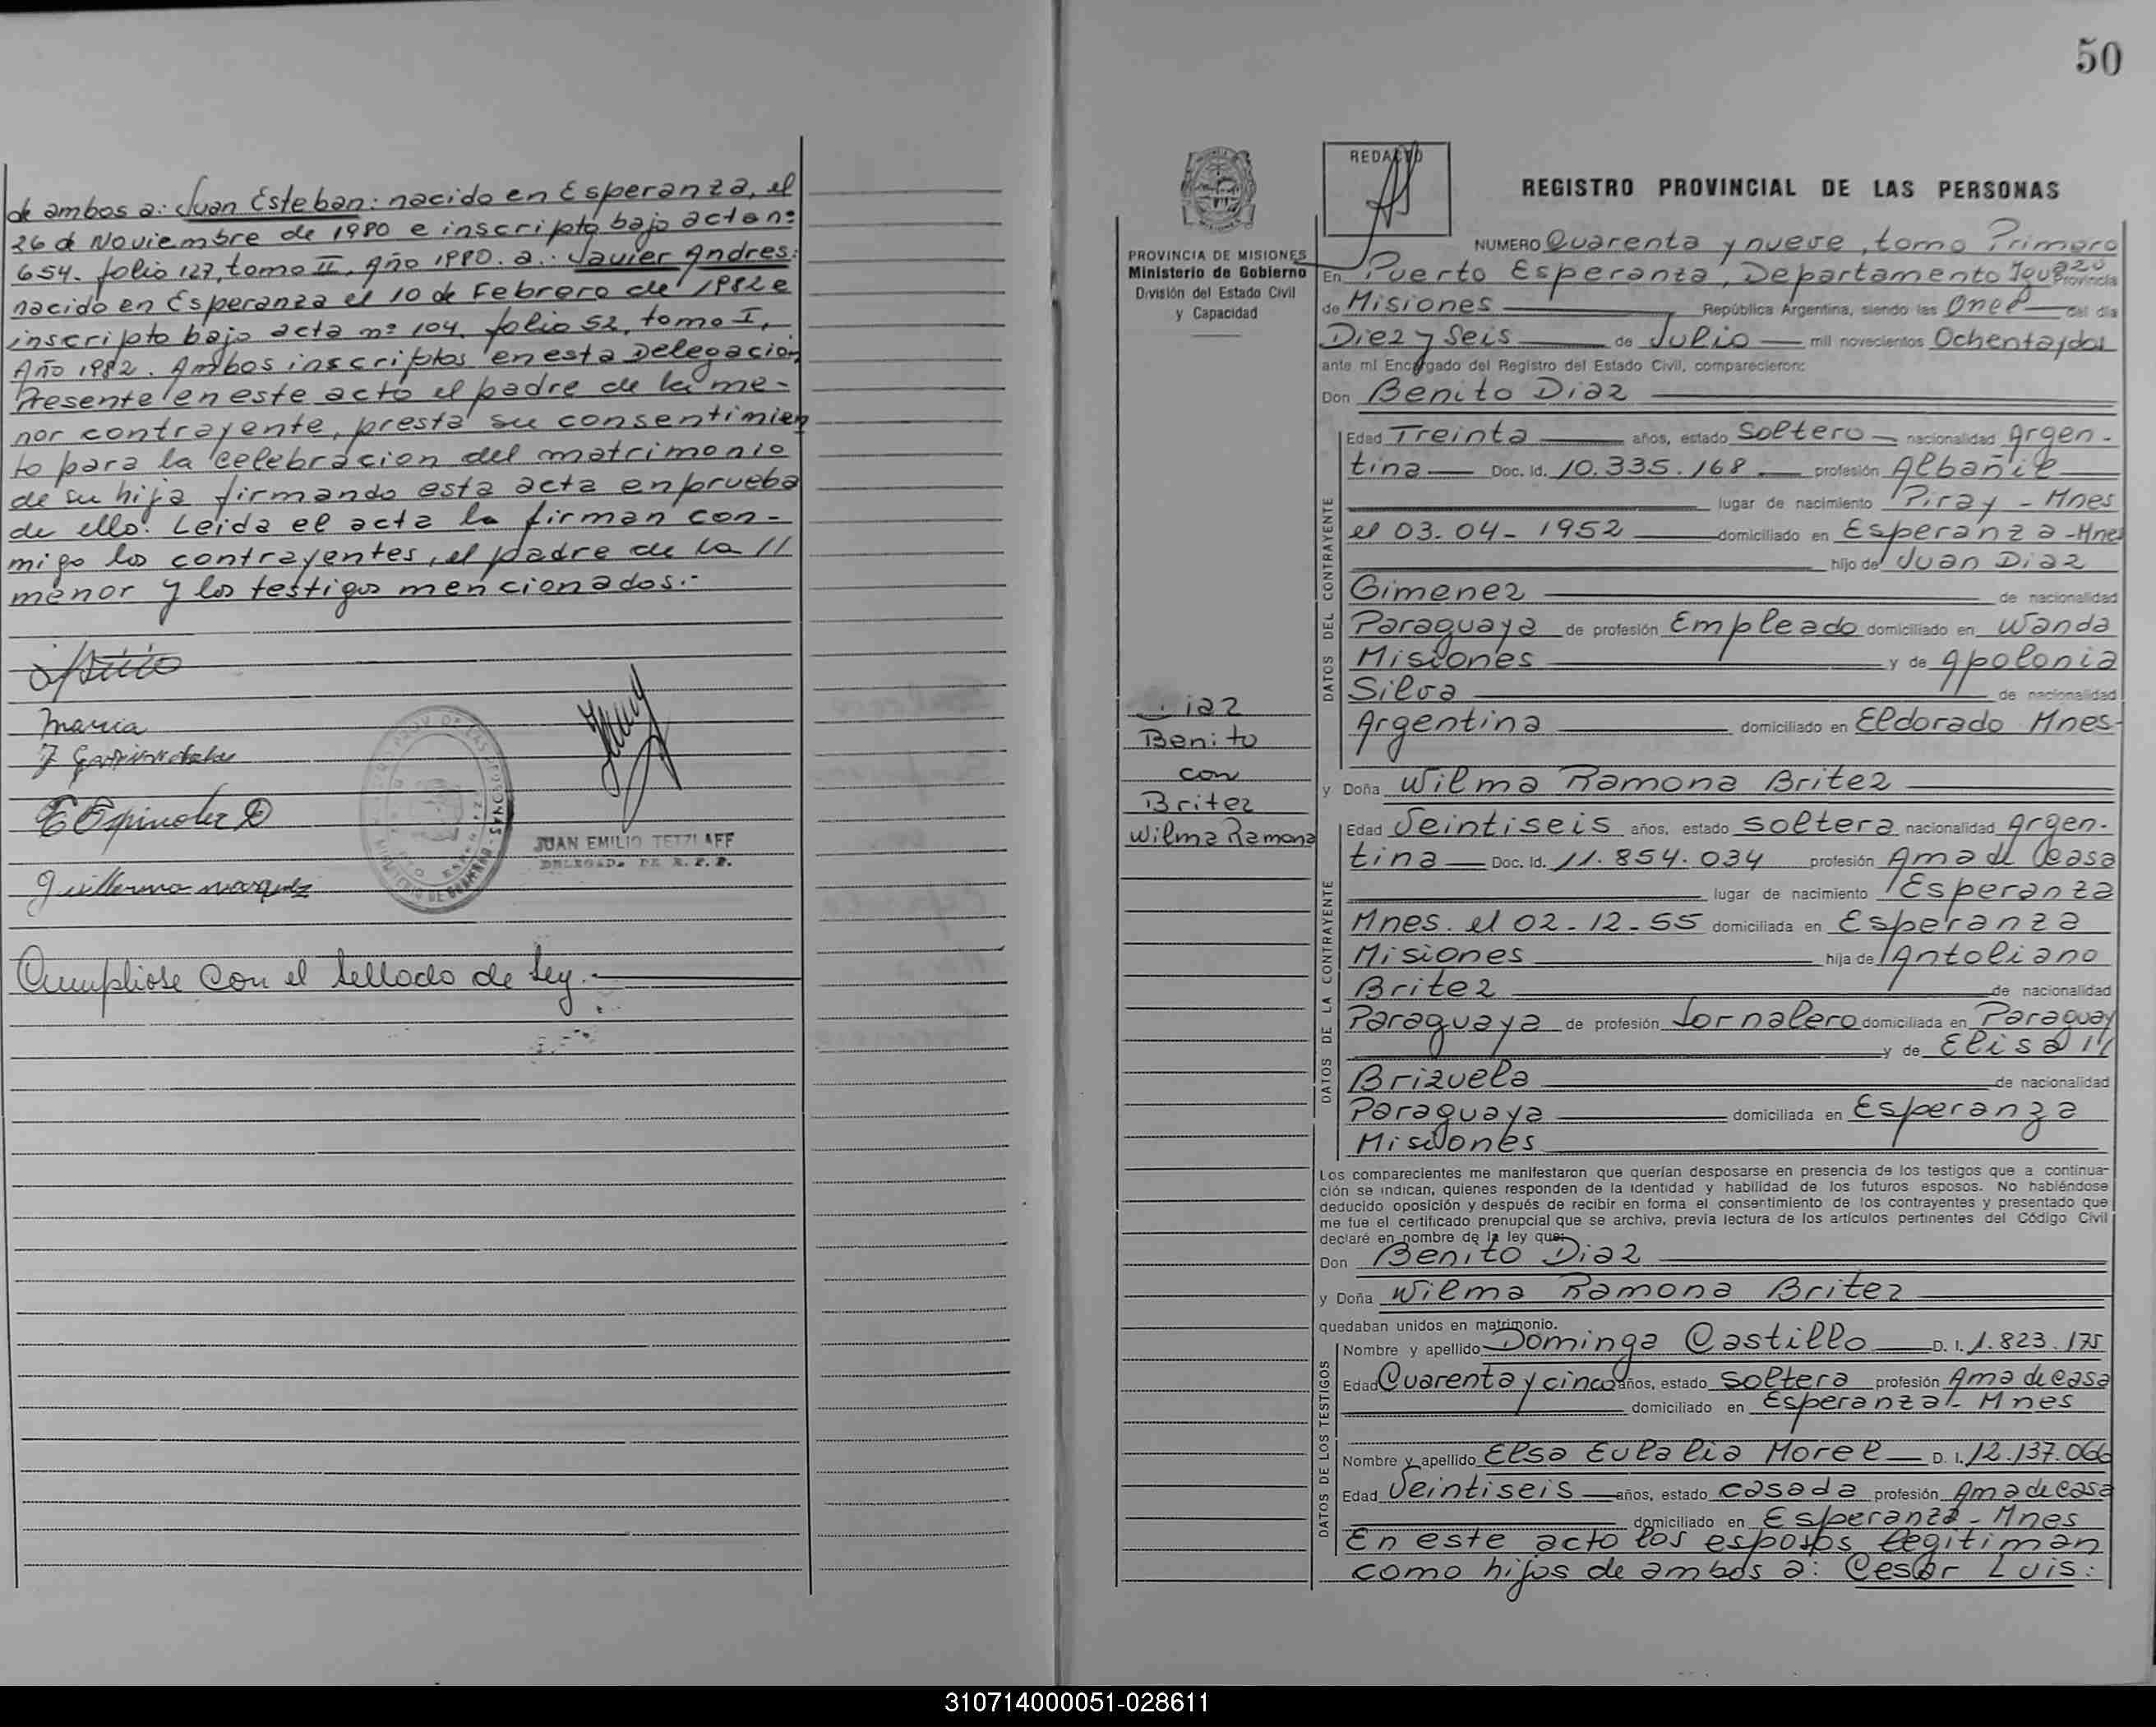 de ambos a: Juan Esteban: nacido en Esperanza, el
26 de Noviembre de 1980 e inscripto bajo acta nº
654. folio 127, tomo II, Año 1980. a.. Javier Andres:
nacido en Esperanza el 10 de Febrero de 1982 e
inscripto bajo acta nº 104, folio 52, tomo I,
Año 1982. Ambos inscriptos en esta Delegacion
Presente en este acto el padre de la me-
nor contrayente, presta su consentimien
to para la celebracion del matrimonio
de su hija firmando esta acta en prueba
de ello. Leida el acta la firman con-
migo los contrayentes, el padre de la //
menor y los testigos mencionados.-
Maria
E Espinola D
JUAN EMILIO TETZLAFF
DELEGADO DE R. P. P.
Guillermo Marquez
Cumpliose con el sellado de Ley.-
50
REDACTO
REGISTRO PROVINCIAL DE LAS PERSONAS
PROVINCIA DE MISIONES
Ministerio de Gobierno
División del Estado Civil
y Capacidad
Diaz
Benito
con
Britez
Wilma Ramona
NUMERO Quarenta y nueve, tomo Primero
En Puerto Esperanza, Departamento Iguazú Provincia
de Misiones República Argentina, siendo las Once del día
Diez y Seis de Julio mil novecientos Ochenta y dos
ante mí Encargado del Registro del Estado Civil, comparecieron:
Don Benito Diaz
DATOS DEL CONTRAYENTE
Edad Treinta años, estado Soltero nacionalidad Argen-
tina Doc. Id. 10.335.168 profesión Albañil
lugar de nacimiento Piray - Mnes
el 03-04-1952 domiciliado en Esperanza-Mnes
hijo de Juan Diaz
Gimenez de nacionalidad
Paraguaya de profesión Empleado domiciliado en Wanda
Misiones y de Apolonia
Silva de nacionalidad
Argentina domiciliado en Eldorado Mnes-
y Doña Wilma Ramona Britez
DATOS DE LA CONTRAYENTE
Edad Veintiseis años, estado Soltera nacionalidad Argen-
tina Doc. Id. 11.854.034 profesión Ama de Casa
lugar de nacimiento Esperanza
Mnes. el 02-12-55 domiciliada en Esperanza
Misiones hija de Antoliano
Britez de nacionalidad
Paraguaya de profesión Jornalero domiciliada en Paraguay
y de Elisa //
Brizuela de nacionalidad
Paraguaya domiciliada en Esperanza
Misiones
Los comparecientes me manifestaron que querían desposarse en presencia de los testigos que a continua-
ción se indican, quienes responden de la identidad y habilidad de los futuros esposos. No habiéndose
deducido oposición y después de recibir en forma el consentimiento de los contrayentes y presentado que
me fue el certificado prenupcial que se archiva, previa lectura de los artículos pertinentes del Código Civil
declaré en nombre de la ley que:
Don Benito Diaz
y Doña Wilma Ramona Britez
quedaban unidos en matrimonio.
DATOS DE LOS TESTIGOS
Nombre y apellido Dominga Castillo D. I. 1.823.175
Edad Quarenta y cinco años, estado Soltera profesión Ama de casa
domiciliado en Esperanza- Mnes
Nombre y apellido Elsa Eulalia Morel D. I. 12.137.066
Edad Veintiseis años, estado casada profesión Ama de casa
domiciliado en Esperanza - Mnes
En este acto los esposos legitiman
como hijos de ambos a: Cesar Luis:
310714000051-028611